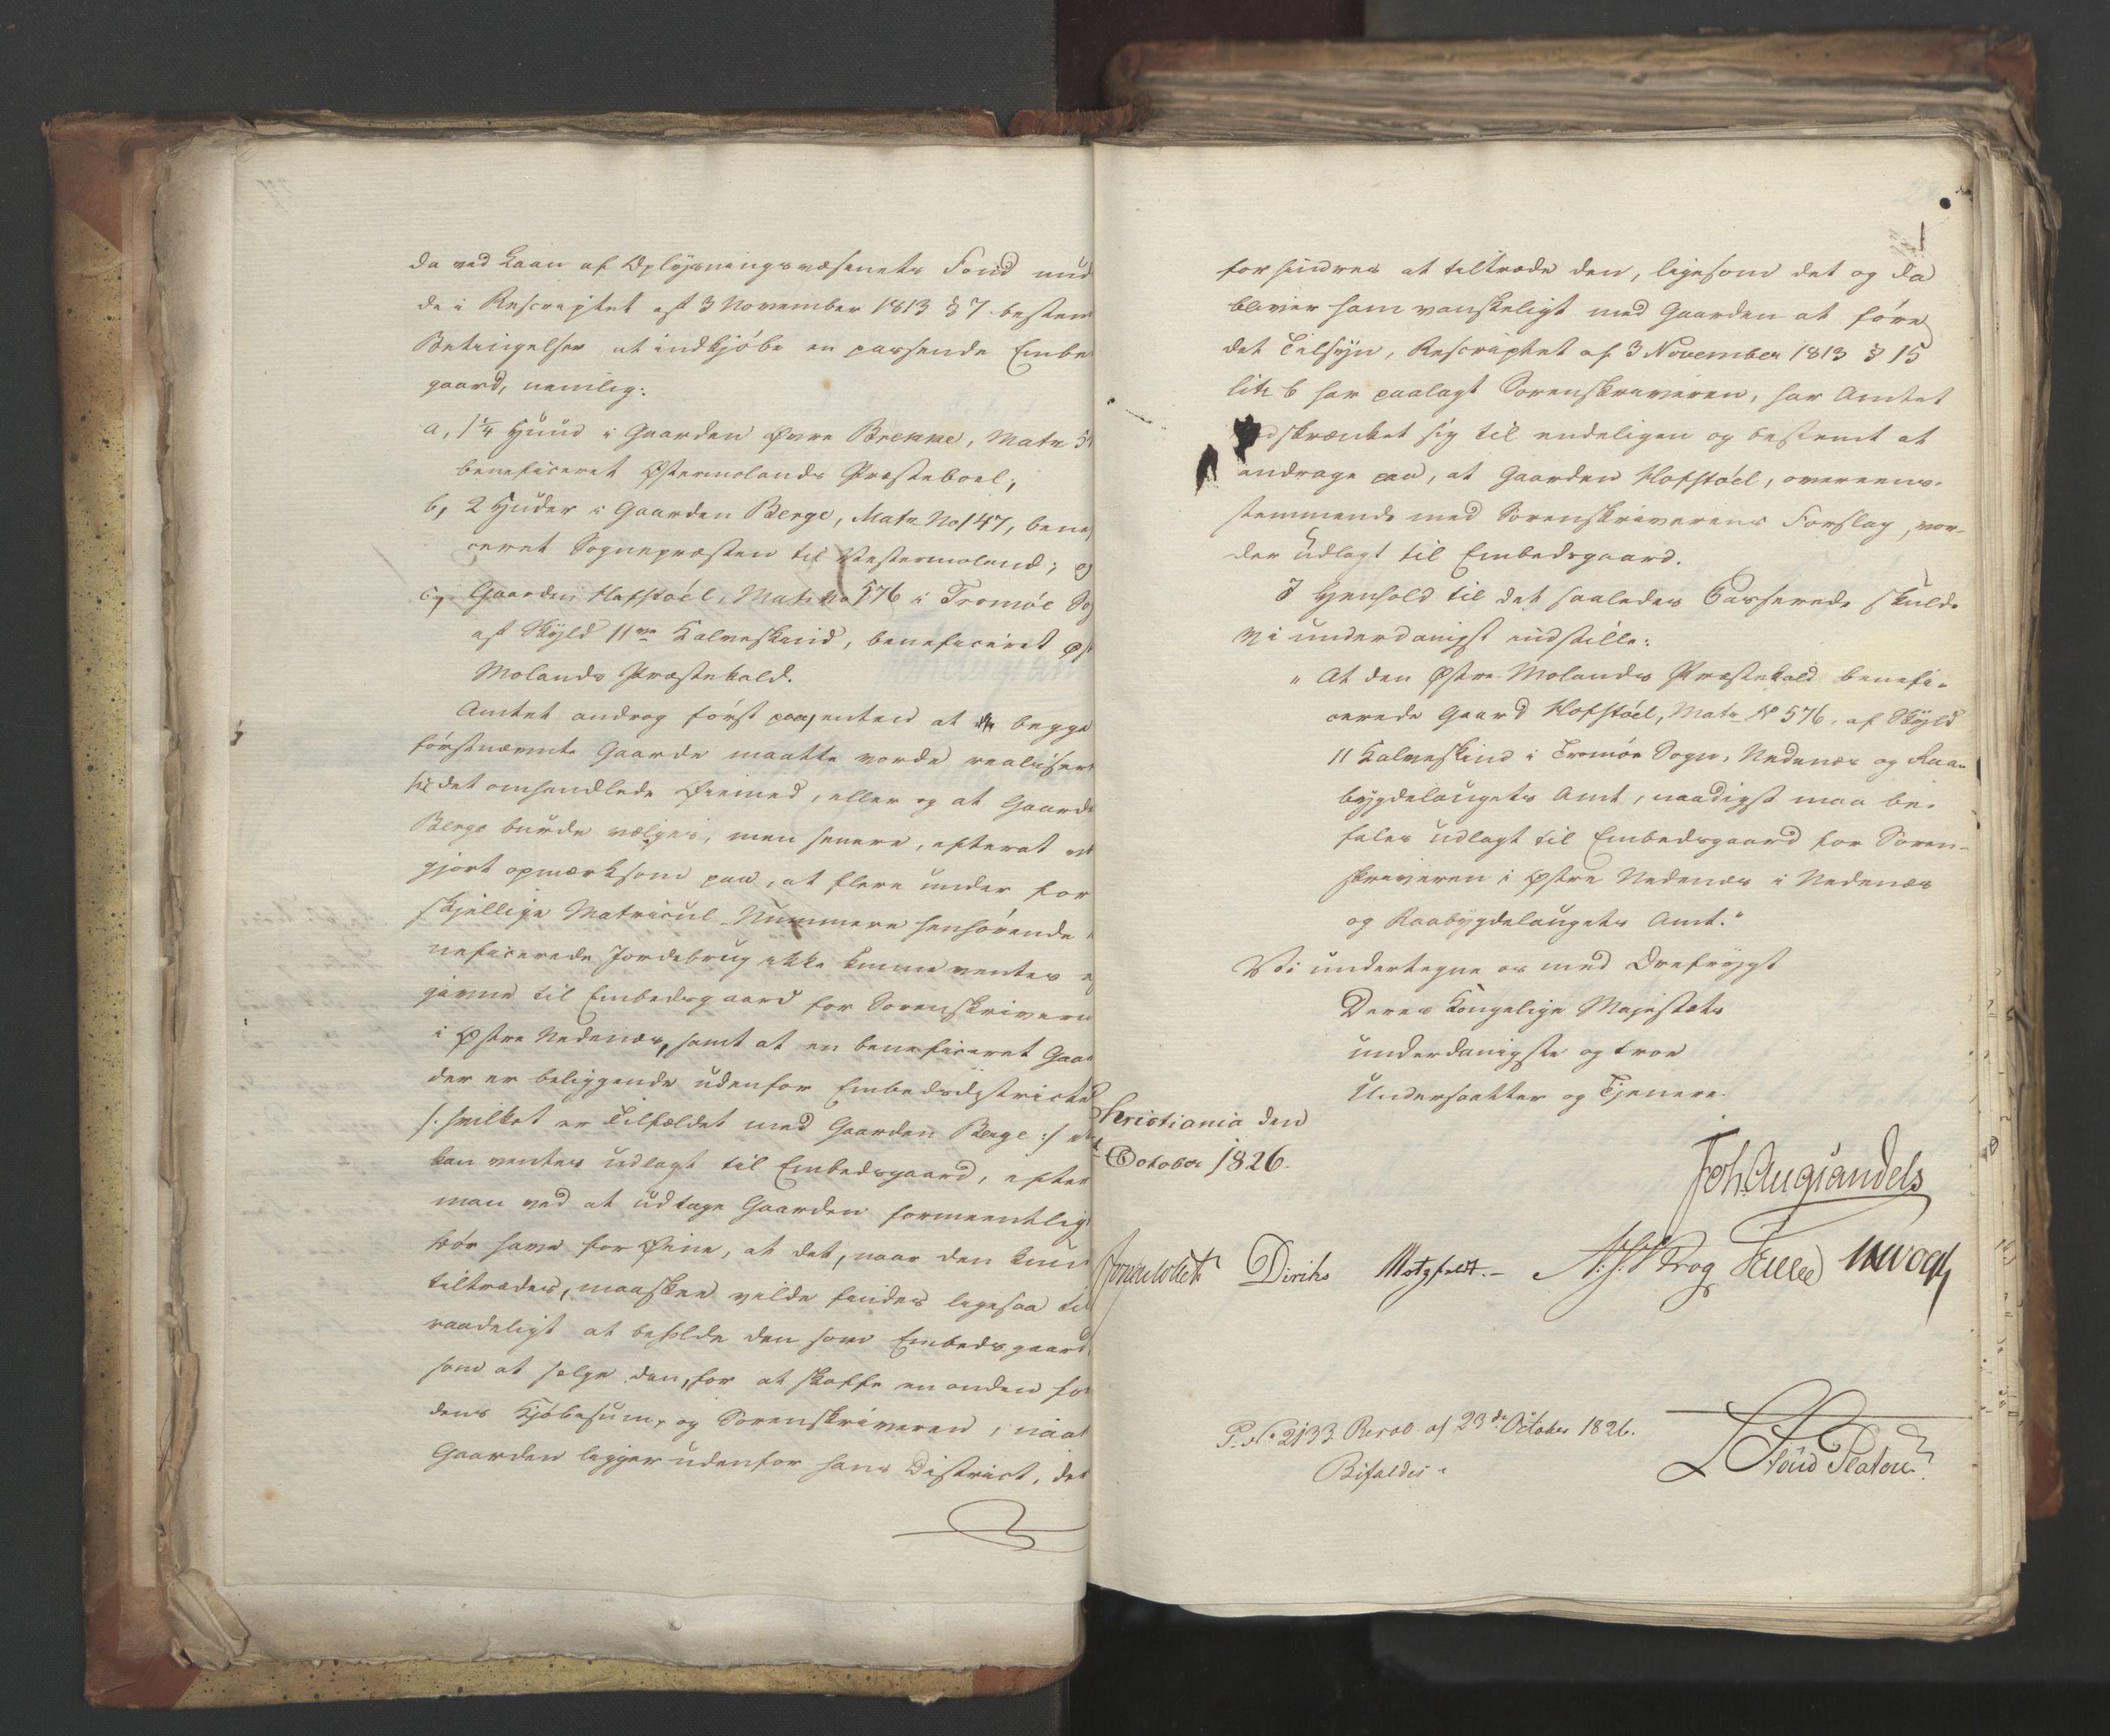 da ved Laan af Oplysningsvæsenets Fond und
de i Rescriptet af 3 November 1813 § 7 bestem
Betingelser at indkjøbe en passende Embe
gaard, nemlig:
a, 1 1/4 Huud i Gaarden Øvre Brekke, Matr 5
beneficeret Østermolands Præsteboel;
b, 2 Huder i Gaarden Berge, Matr No 147, bene
ceret Sognepræsten til Vestermoland; og
c, Gaarden Hofstöel, Matr No 576 i Tromøe So
af Skyld 11 Kalveskind, beneficeret Øst
Molands Præstekald.
Amtet androg først paa, enten at de begge
førstnævnte Gaarde maatte vorde realiser
til det omhandlede Øiemed, eller og at Gaard
Berge burde vælges, men senere, efterat
gjort opmærksom paa, at flere under for
skjellige Matricul-Nummere henhørende
neficerede Jordebrug ikke kunne ventes
givne til Embedsgaard for Sorenskriveren
i Østre Nedenæs, samt at en beneficeret Gaar
der er beliggende udenfor Embedsdistrictet
/: hvilket er Tilfældet med Gaarden Berge :/
kan ventes udlagt til Embedsgaard, efter
man ved at udtage Gaarden formeentlig
bør have for Øine, at det, naar den kun
tiltrædes, maaskee vilde findes ligesaa til
raadeligt at beholde den som Embedsgaard
som at sælge den, for at skaffe en anden fo
dens Kjøbesum, og Sorenskriveren, naar
Gaarden ligger udenfor hans District, det
forhindres at tiltræde den, ligesom det og da
bliver ham vanskeligt med Gaarden at føre
det Tilsyn, Rescriptet af 3 November 1813 § 15
litr b har paalagt Sorenskriveren, har Amtet
indskrænket sig til endeligen og bestemt at
andrage paa, at Gaarden Hofstöel, overeens-
stemmende med Sorenskriverens Forslag, vor-
der udlagt til Embedsgaard.
I Henhold til det saaledes Passerede skulde
vi underdanigst indstille:
"At den Østre-Molands Præstekald benefi-
cerede Gaard Hofstöel, Matr No 576, af Skyld
11 Kalveskind i Tromøe Sogn, Nedenæs og Raa-
bygdelaugets Amt, naadigst maa be-
fales udlagt til Embedsgaard for Soren-
skriveren i Østre Nedenæs i Nedenæs
og Raabygdelaugets Amt."
Vi undertegne os med Ærefrygt
Deres Kongelige Majestæts
underdanigste og troe
Undersaatter og Tjenere.
Christiania den
October 1826.
Joh. Aug. Sandels
Jonas Collett Diriks Motzfeldt. Krog Fasting Vogt
P. No 2133 Resol. af 23de October 1826.
Bifaldes.
Stoud Platou